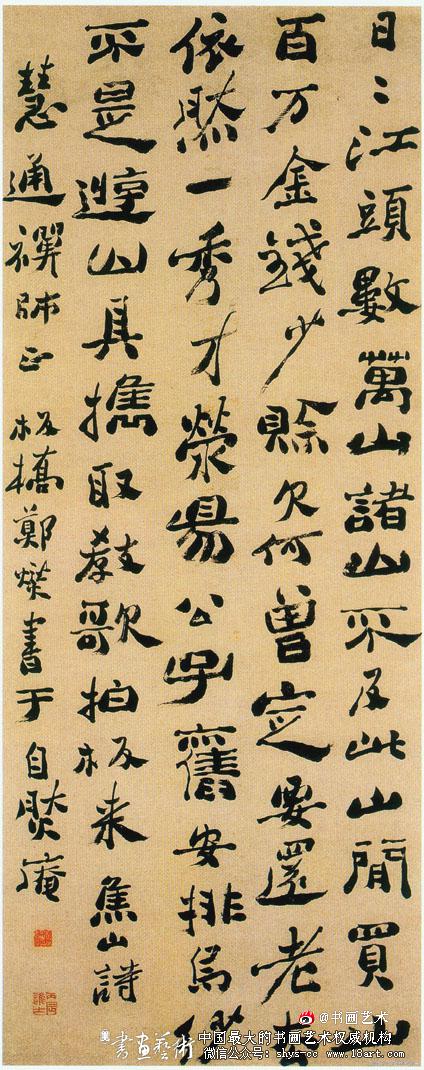 日〻江頭數萬山諸山不及此山閒買山
百万金錢少賒欠何曾定要還老去
依然一秀才滎昜公子舊安排烏紗
不是遊山具攜取教歌拍板來焦山詩
慧通禪師正 板橋鄭燮書于自然庵
丙辰進士
@书画艺术
書畫藝術
中国最大的书画艺术权威机构
微信公众号：shys-cc www.18art.com